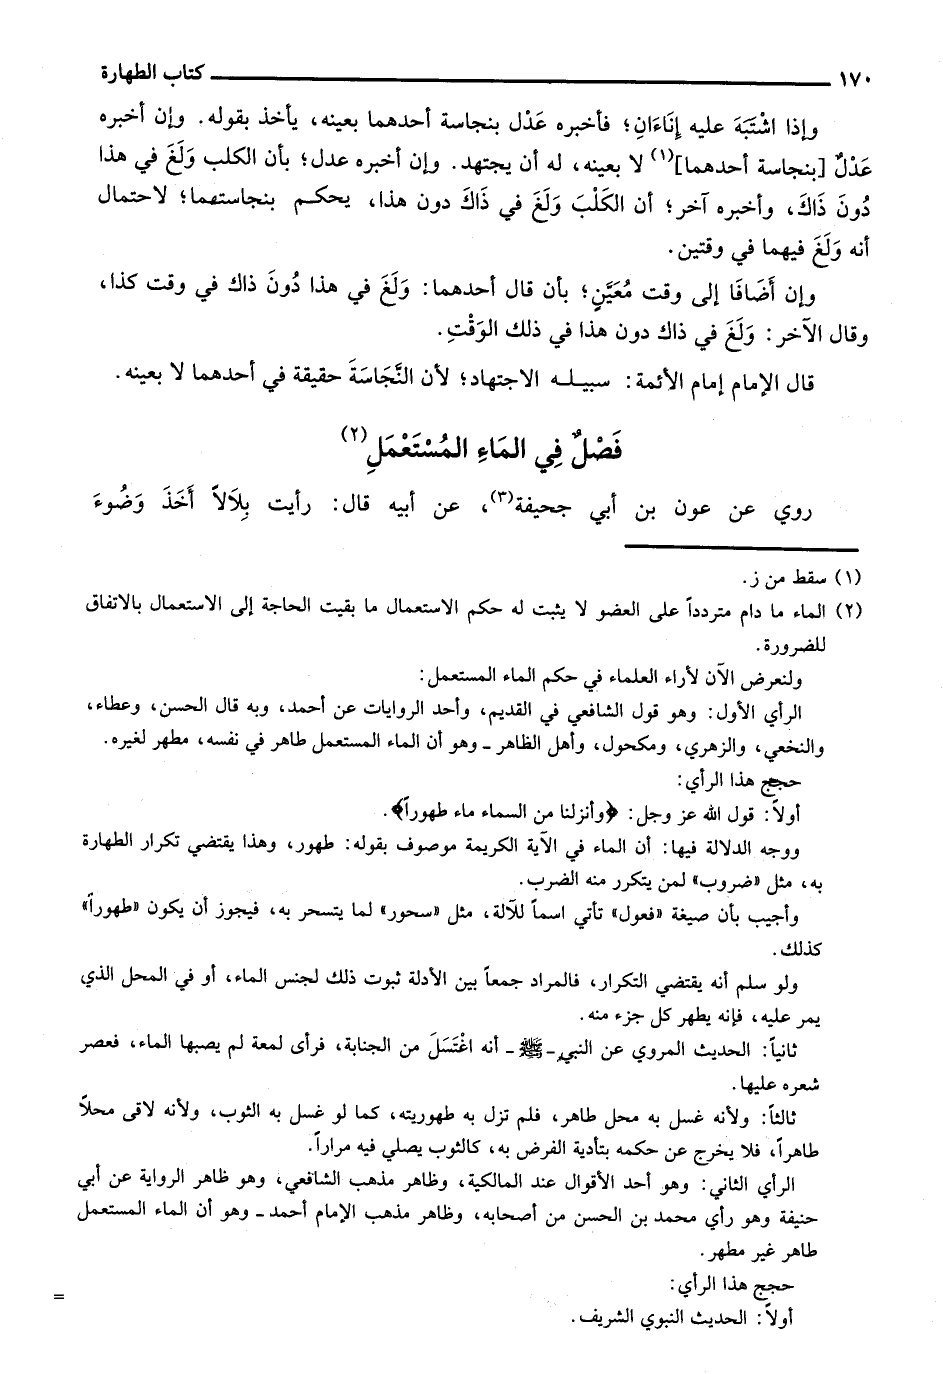 ١٧٠ كتاب الطهارة
وإذا اشْتَبَهَ عليه إِنَاءَانِ؛ فأخبره عَدْل بنجاسة أحدهما بعينه، يأخذ بقوله. وإن أخبره
عَدْلٌ [بنجاسة أحدهما](١) لا بعينه، له أن يجتهد. وإن أخبره عدل؛ بأن الكلب وَلَغَ في هذا
دُونَ ذَاكَ، وأخبره آخر؛ أن الكَلْبَ وَلَغَ في ذَاكَ دون هذا، يحكم بنجاستهما؛ لاحتمال
أنه وَلَغَ فيهما في وقتين.
وإن أَضَافَا إلى وقت مُعَيَّنٍ؛ بأن قال أحدهما: وَلَغَ في هذا دُونَ ذاك في وقت كذا،
وقال الآخر: وَلَغَ في ذاك دون هذا في ذلك الوَقْتِ.
قال الإمام إمام الأئمة: سبيله الاجتهاد؛ لأن النَّجَاسَةَ حقيقة في أحدهما لا بعينه.
فَصْلٌ فِي المَاءِ المُسْتَعْمَلِ(٢)
روي عن عون بن أبي جحيفة(٣)، عن أبيه قال: رأيت بِلَالاً أَخَذَ وَضُوءَ
(١) سقط من ز.
(٢) الماء ما دام متردداً على العضو لا يثبت له حكم الاستعمال ما بقيت الحاجة إلى الاستعمال بالاتفاق
للضرورة.
ولنعرض الآن لأراء العلماء في حكم الماء المستعمل:
الرأي الأول: وهو قول الشافعي في القديم، وأحد الروايات عن أحمد، وبه قال الحسن، وعطاء،
والنخعي، والزهري، ومكحول، وأهل الظاهر ـ وهو أن الماء المستعمل طاهر في نفسه، مطهر لغيره.
حجج هذا الرأي:
أولاً: قول الله عز وجل: ﴿وأنزلنا من السماء ماء طهوراً﴾.
ووجه الدلالة فيها: أن الماء في الآية الكريمة موصوف بقوله: طهور، وهذا يقتضي تكرار الطهارة
به، مثل «ضروب» لمن يتكرر منه الضرب.
وأجيب بأن صيغة «فعول» تأتي اسماً للآلة، مثل «سحور» لما يتسحر به، فيجوز أن يكون «طهوراً»
كذلك.
ولو سلم أنه يقتضي التكرار، فالمراد جمعاً بين الأدلة ثبوت ذلك لجنس الماء، أو في المحل الذي
يمر عليه، فإنه يطهر كل جزء منه.
ثانياً: الحديث المروي عن النبي ـ ﷺ ـ أنه اغْتَسَلَ من الجنابة، فرأى لمعة لم يصبها الماء، فعصر
شعره عليها.
ثالثاً: ولأنه غسل به محل طاهر، فلم تزل به طهوريته، كما لو غسل به الثوب، ولأنه لاقى محلاً
طاهراً، فلا يخرج عن حكمه بتأدية الفرض به، كالثوب يصلي فيه مراراً.
الرأي الثاني: وهو أحد الأقوال عند المالكية، وظاهر مذهب الشافعي، وهو ظاهر الرواية عن أبي
حنيفة وهو رأي محمد بن الحسن من أصحابه، وظاهر مذهب الإمام أحمد ـ وهو أن الماء المستعمل
طاهر غير مطهر.
حجج هذا الرأي:
أولاً: الحديث النبوي الشريف.
=